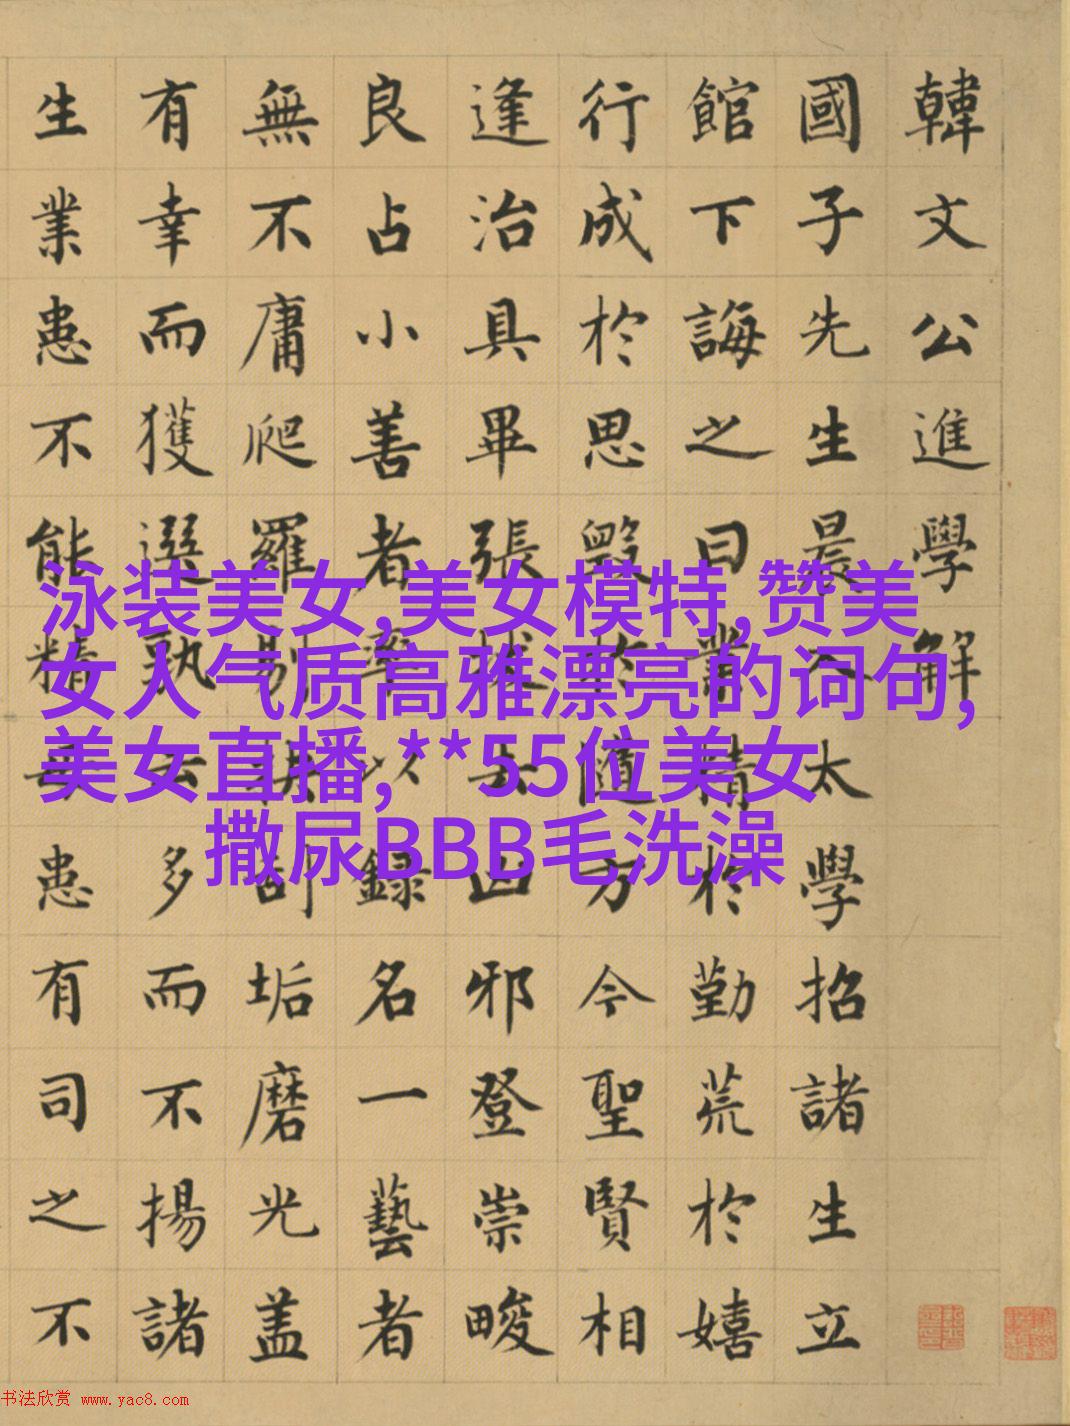 韓文公進學解
國子先生晨入太學招諸生立
館下誨之曰業精於勤荒於嬉
行成於思毀於隨方今聖賢相
逢治具畢張拔去凶邪登崇畯
良占小善者率以録名一藝者
無不庸爬羅剔抉刮垢磨光盖
有幸而獲選孰云多而不揚諸
生業患不能精毋患有司之不
泳装美女,美女模特,赞美
女人气质高雅漂亮的词句,
美女直播,**55位美女
撒尿BBB毛洗澡
书法欣赏 www.yac8.com